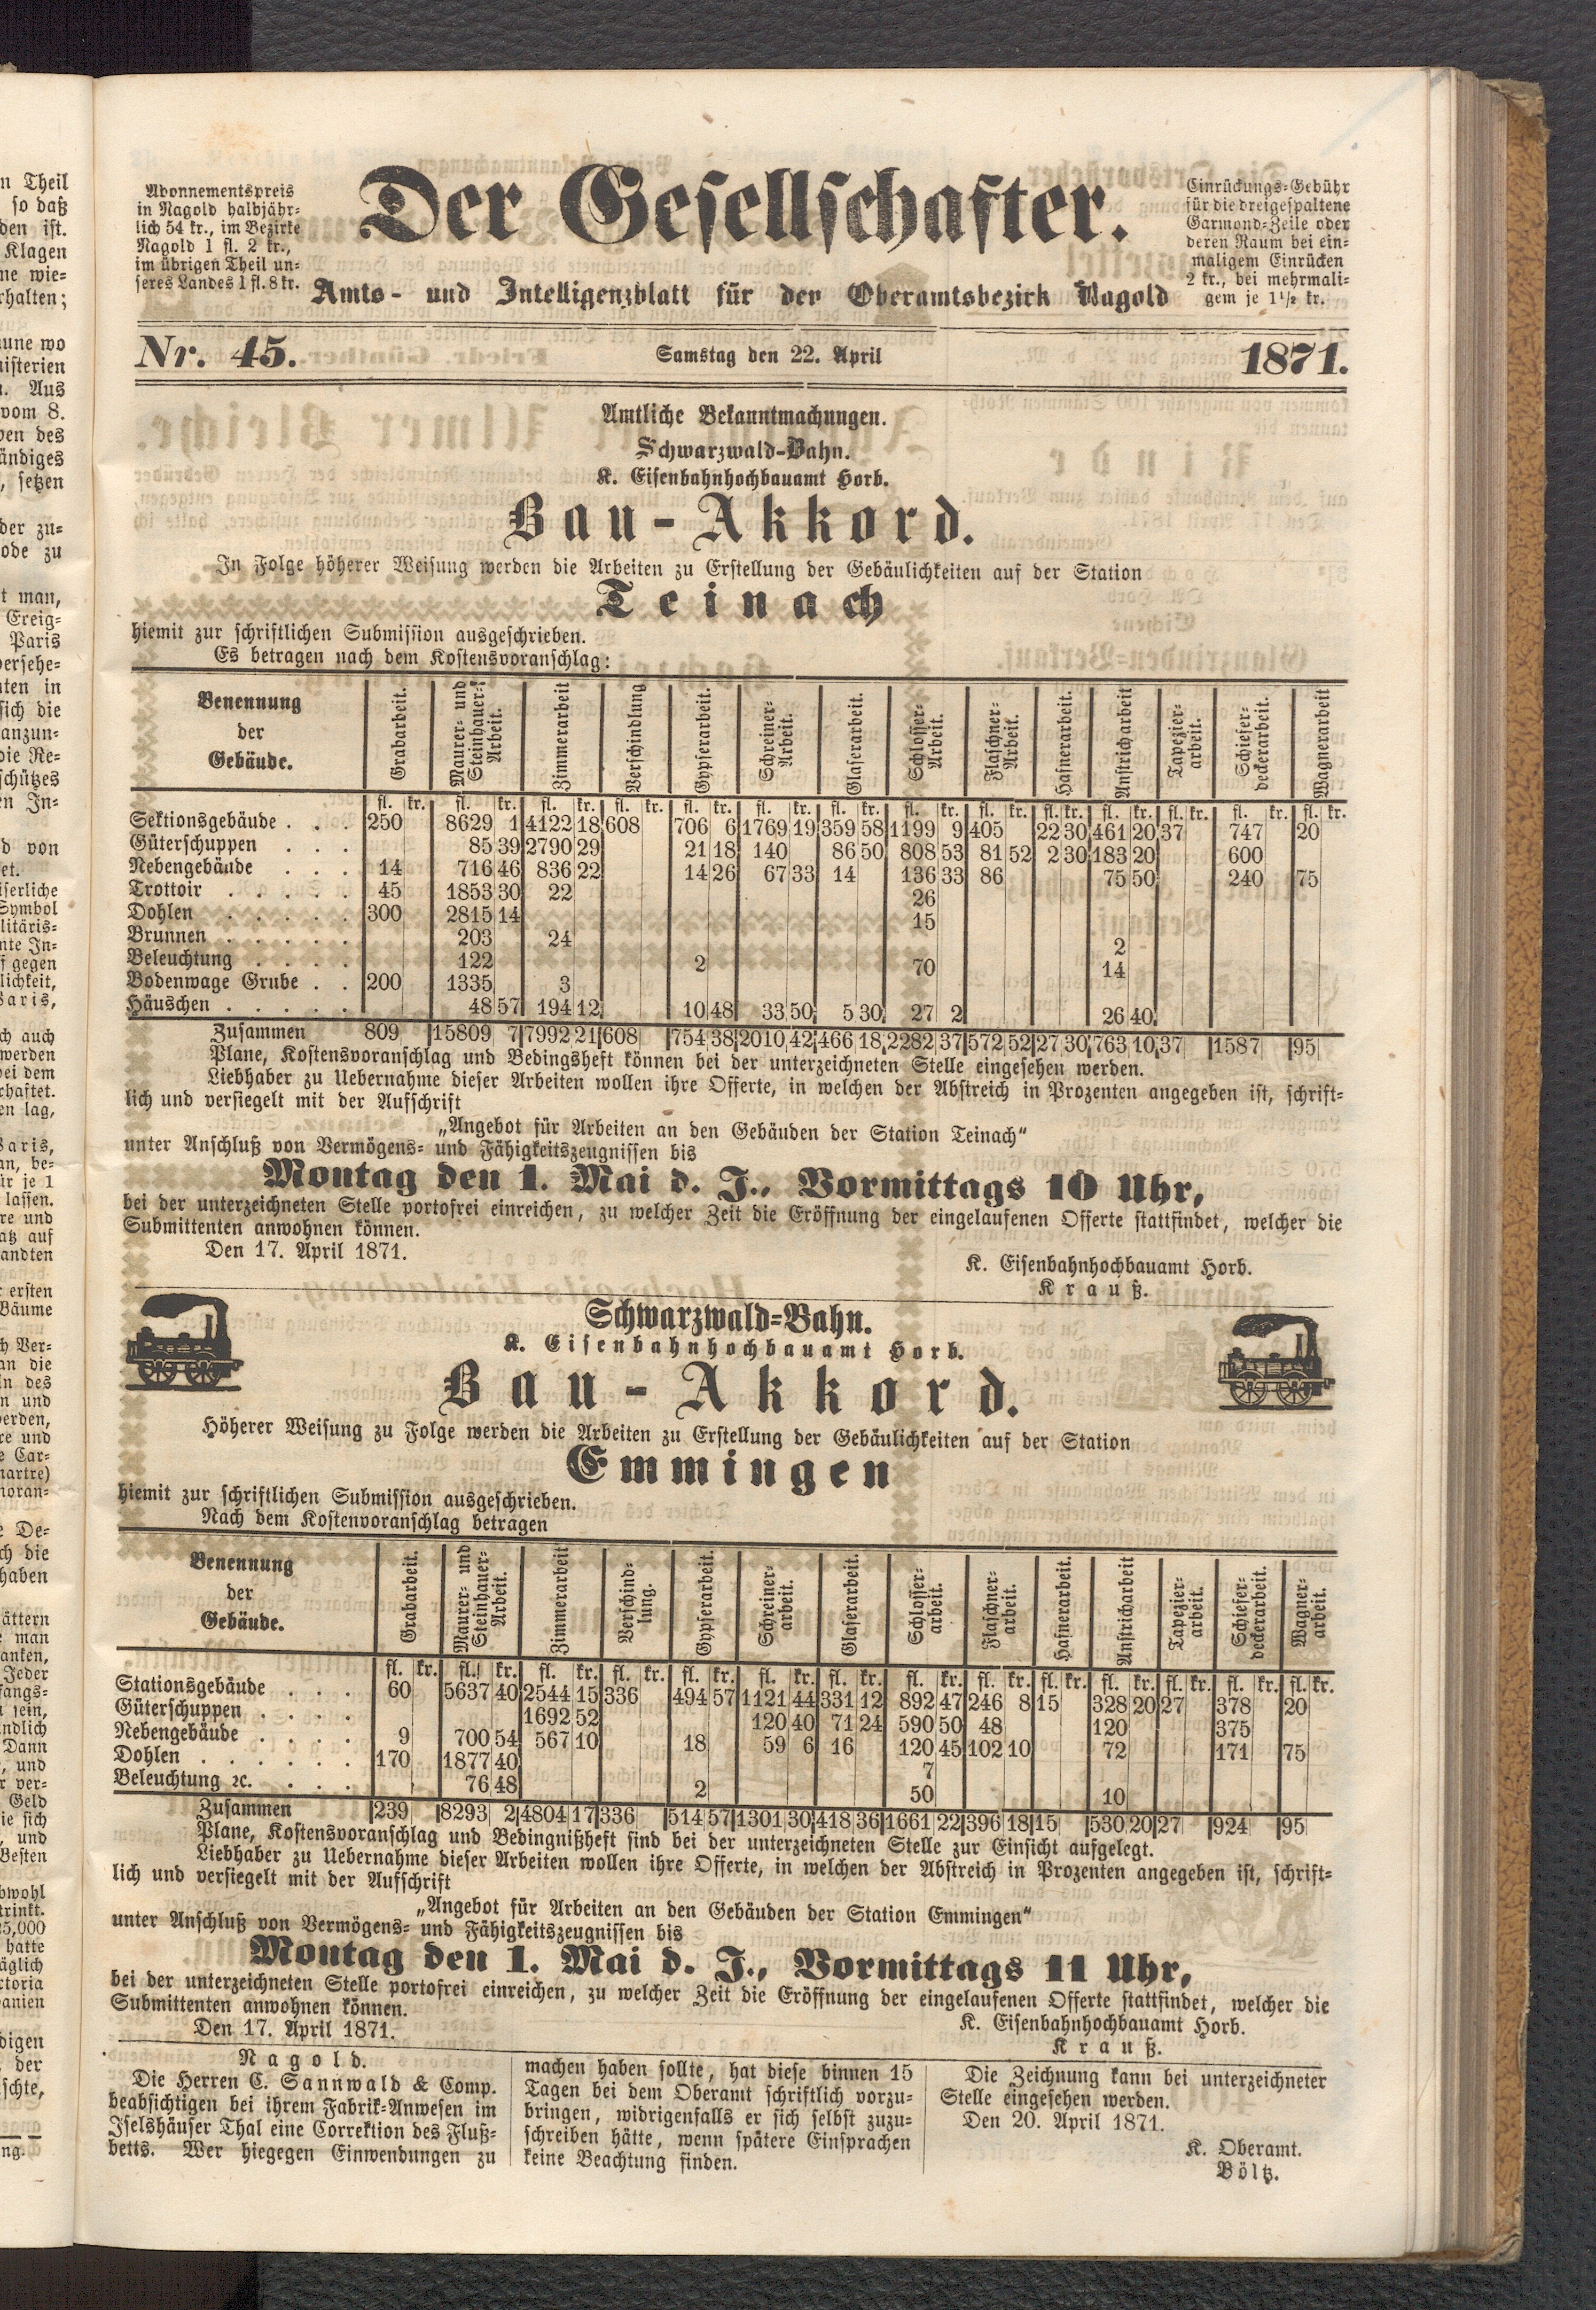 Abonnementspreis
in Nagold halbjähr-
lich 54 kr., im Bezirke
Nagold 1 fl. 2 kr.,
im übrigen Theil un-
seres Landes 1 fl. 8 kr.
Der Gesellschafter.
Amts- und Intelligenzblatt für den Oberamtsbezirk Nagold
Einrückungs-Gebühr
für die dreigespaltene
Garmond-Zeile oder
deren Raum bei ein-
maligem Einrücken
2 kr., bei mehrmali-
gem je 1½ kr.
Nr. 45. Samstag den 22. April 1871.
Amtliche Bekanntmachungen.
Schwarzwald-Bahn.
K. Eisenbahnhochbauamt Horb.
Bau-Akkord.
In Folge höherer Weisung werden die Arbeiten zu Erstellung der Gebäulichkeiten auf der Station
Teinach
hiemit zur schriftlichen Submission ausgeschrieben.
Es betragen nach dem Kostensvoranschlag:
Benennung der Gebäude. Grabarbeit. Maurer- und Steinhauer-Arbeit. Zimmerarbeit Verschindlung Gypserarbeit. Schreiner-Arbeit. Glaserarbeit. Schlosser-Arbeit. Flaschner-Arbeit. Hafnerarbeit. Anstricharbeit Tapezier-arbeit. Schiefer-deckerarbeit. Wagnerarbeit
fl. kr. fl. kr. fl. kr. fl. kr. fl. kr. fl. kr. fl. kr. fl. kr. fl. kr. fl. kr. fl. kr. fl. kr. fl. kr. fl. kr.
Sektionsgebäude . . . 250 8629 1 4122 18 608 706 6 1769 19 359 58 1199 9 405 22 30 461 20 37 747 20
Güterschuppen . . . 85 39 2790 29 21 18 140 86 50 808 53 81 52 2 30 183 20 600
Nebengebäude . . . 14 716 46 836 22 14 26 67 33 14 136 33 86 75 50 240 75
Trottoir . . . . . 45 1853 30 22 26
Dohlen . . . . . 300 2815 14 15
Brunnen . . . . . 203 24 2
Beleuchtung . . . . 122 2 70 14
Bodenwage Grube . . 200 1335 3
Häuschen . . . . . 48 57 194 12 10 48 33 50 5 30 27 2 26 40
Zusammen 809 15809 7 7992 21 608 754 38 2010 42 466 18 2282 37 572 52 27 30 763 10 37 1587 95
Plane, Kostensvoranschlag und Bedingsheft können bei der unterzeichneten Stelle eingesehen werden.
Liebhaber zu Uebernahme dieser Arbeiten wollen ihre Offerte, in welchen der Abstreich in Prozenten angegeben ist, schrift-
lich und versiegelt mit der Aufschrift
„Angebot für Arbeiten an den Gebäuden der Station Teinach“
unter Anschluß von Vermögens- und Fähigkeitszeugnissen bis
Montag den 1. Mai d. J., Vormittags 10 Uhr,
bei der unterzeichneten Stelle portofrei einreichen, zu welcher Zeit die Eröffnung der eingelaufenen Offerte stattfindet, welcher die
Submittenten anwohnen können.
Den 17. April 1871.
K. Eisenbahnhochbauamt Horb.
Krauß.
Schwarzwald-Bahn.
K. Eisenbahnhochbauamt Horb.
Bau-Akkord.
Höherer Weisung zu Folge werden die Arbeiten zu Erstellung der Gebäulichkeiten auf der Station
Emmingen
hiemit zur schriftlichen Submission ausgeschrieben.
Nach dem Kostenvoranschlag betragen
Benennung der Gebäude. Grabarbeit. Maurer- und Steinhauer-Arbeit. Zimmerarbeit Verschind-lung. Gypserarbeit. Schreiner-arbeit. Glaserarbeit. Schlosser-arbeit. Flaschner-arbeit. Hafnerarbeit. Anstricharbeit Tapezier-arbeit. Schiefer-deckerarbeit. Wagner-arbeit.
fl. kr. fl. kr. fl. kr. fl. kr. fl. kr. fl. kr. fl. kr. fl. kr. fl. kr. fl. kr. fl. kr. fl. kr. fl. kr. fl. kr.
Stationsgebäude . . . 60 5637 40 2544 15 336 494 57 1121 44 331 12 892 47 246 8 15 328 20 27 378 20
Güterschuppen . . . . 1692 52 120 40 71 24 590 50 48 120 375
Nebengebäude . . . . 9 700 54 567 10 18 59 6 16 120 45 102 10 72 171 75
Dohlen . . . . . . 170 1877 40 7
Beleuchtung ꝛc. . . . 76 48 2 50 10
Zusammen 239 8293 2 4804 17 336 514 57 1301 30 418 36 1661 22 396 18 15 530 20 27 924 95
Plane, Kostensvoranschlag und Bedingnißheft sind bei der unterzeichneten Stelle zur Einsicht aufgelegt.
Liebhaber zu Uebernahme dieser Arbeiten wollen ihre Offerte, in welchen der Abstreich in Prozenten angegeben ist, schrift-
lich und versiegelt mit der Aufschrift
„Angebot für Arbeiten an den Gebäuden der Station Emmingen“
unter Anschluß von Vermögens- und Fähigkeitszeugnissen bis
Montag den 1. Mai d. J., Vormittags 11 Uhr,
bei der unterzeichneten Stelle portofrei einreichen, zu welcher Zeit die Eröffnung der eingelaufenen Offerte stattfindet, welcher die
Submittenten anwohnen können.
Den 17. April 1871.
K. Eisenbahnhochbauamt Horb.
Krauß.
Nagold.
Die Herren C. Sannwald & Comp.
beabsichtigen bei ihrem Fabrik-Anwesen im
Iselshäuser Thal eine Correktion des Fluß-
betts. Wer hiegegen Einwendungen zu
machen haben sollte, hat diese binnen 15
Tagen bei dem Oberamt schriftlich vorzu-
bringen, widrigenfalls er sich selbst zuzu-
schreiben hätte, wenn spätere Einsprachen
keine Beachtung finden.
Die Zeichnung kann bei unterzeichneter
Stelle eingesehen werden.
Den 20. April 1871.
K. Oberamt.
Böltz.